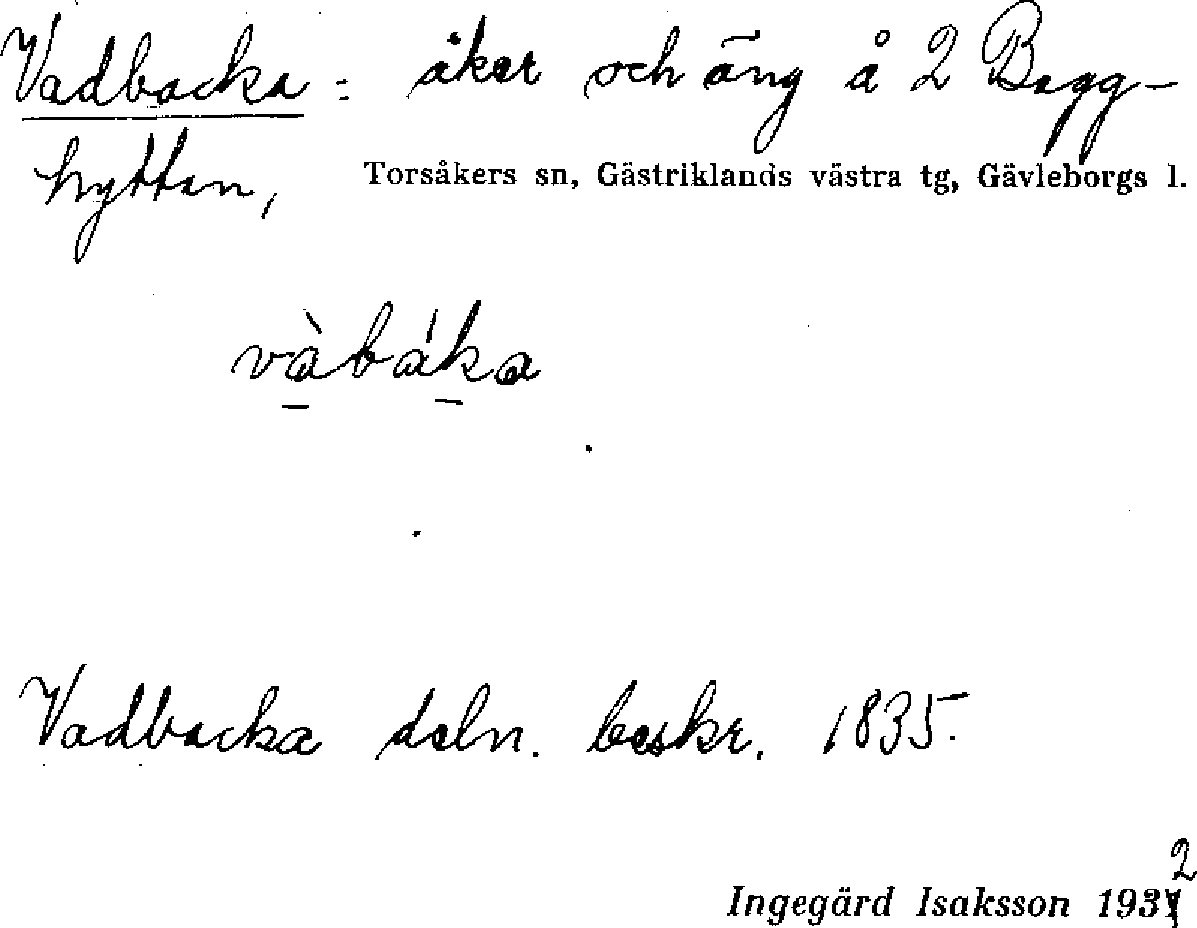 Vadbacka : åker och äng å 2 Bagg-
hyttan,
Torsåkers sn, Gästriklands västra tg, Gävleborgs l.
vàbáka
Vadbacka deln. beskr. 1835.
Ingegärd Isaksson 1932